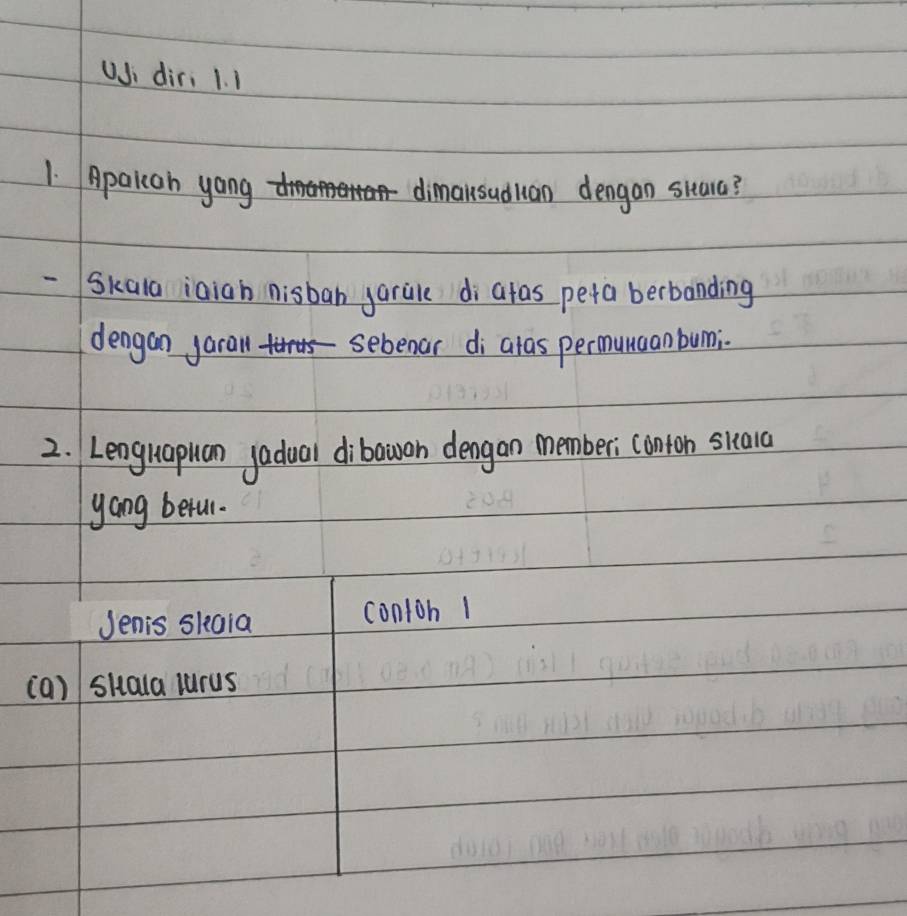 Uji diri 1.1
1. Apakah yang dinamakan dimaksudkan dengan skala?
- Skala ialah nisbah jarak di atas peta berbanding
dengan jarak lurus sebenar di atas permukaan bumi.
2. Lengkapkan jadual dibawah dengan memberi contoh skala
yang betul.
Jenis skala contoh 1
(a) Skala lurus